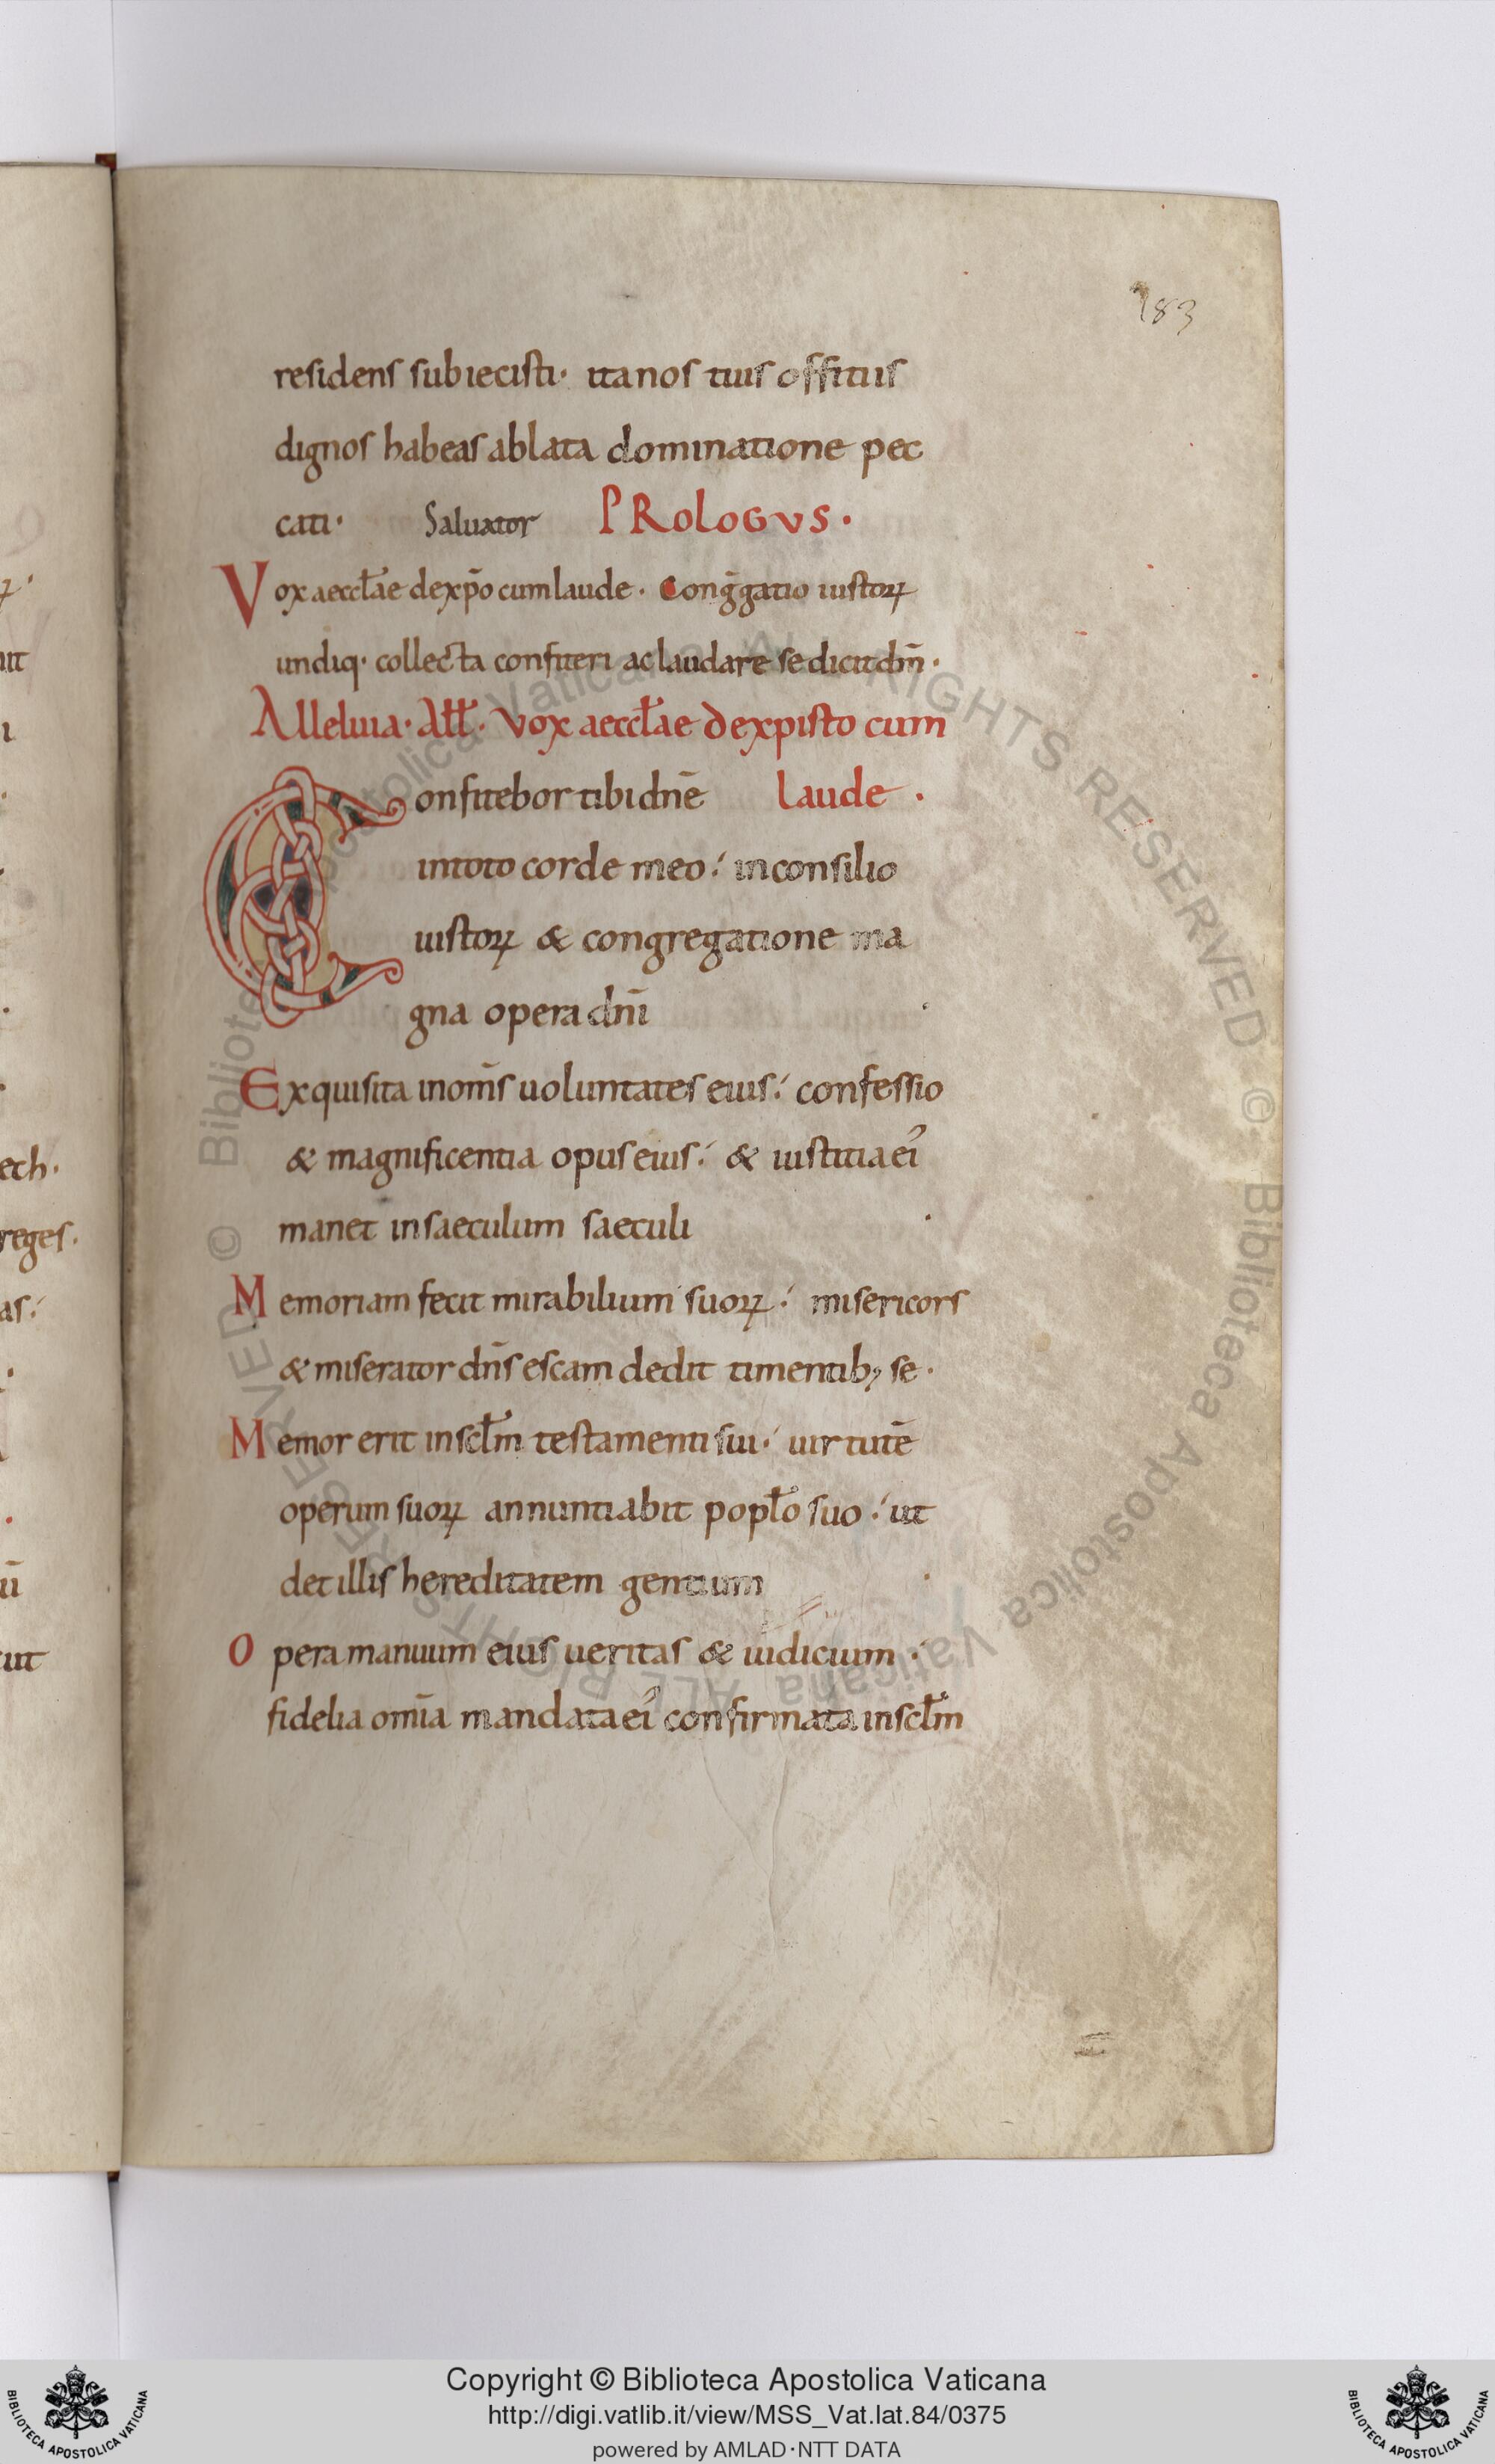 183
residens subiecisti· ita nos tuis offitiis
dignos habeas ablata dominatione pec
cati· Saluator PROLOGVS·
Vox aeccłae de xp̄o cum laude· Congḡatio iustoꝝ
undiq· collecta confiteri ac laudare se dicit dm̄·
Alleluia· Ałł· Vox aeccłae de xpisto cum
Confitebor tibi dnē laude·
in toto corde meo⁏ in consilio
iustoꝝ & congregatione ma
gna opera dnī·
Exquisita in om̄s uoluntates eius⁏ confessio
& magnificentia opus eius⁏ & iustitia ei᾽
manet in saeculum saeculi·
Memoriam fecit mirabilium suoꝝ⁏ misericors
& miserator dn̄s escam dedit timentib; se·
Memor erit in scłm testamenti sui⁏ uirtutē
operum suoꝝ annuntiabit popło suo⁏ ut
det illis hereditatem gentium·
Opera manuum eius ueritas & iudicium⁏
fidelia om̄ia mandata ei᾽ confirmata in scłm
ech·
reges·
as⁏
ut
© Biblioteca Apostolica Vaticana ALL RIGHTS RESERVED © Biblioteca Apostolica Vaticana ALL RIGHTS RESERVED
BIBLIOTECA APOSTOLICA VATICANA
Copyright © Biblioteca Apostolica Vaticana
http://digi.vatlib.it/view/MSS_Vat.lat.84/0375
powered by AMLAD·NTT DATA
BIBLIOTECA APOSTOLICA VATICANA